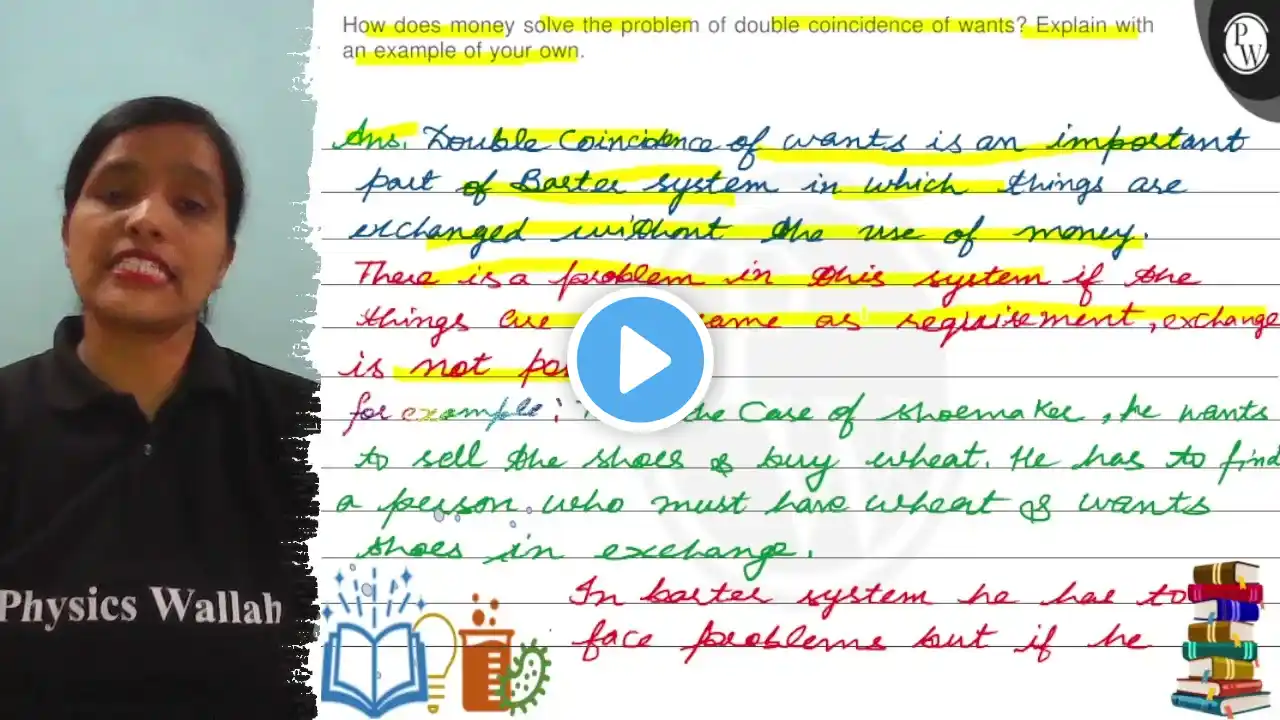 How does money solve the problem of double coincidence of wants? Explain with
an example of your own.
PW
Ans. Double Coincidence of wants is an important
part of Barter system in which things are
exchanged without the use of money.
There is a problem in this system if the
things are same as requirement, exchange
is not
for example: the Case of shoemaker, he wants
to sell the shoes & buy wheat. He has to find
a person who must have wheat & wants
shoes in exchange.
Physics Wallah
In barter system he has to
face problems but if he